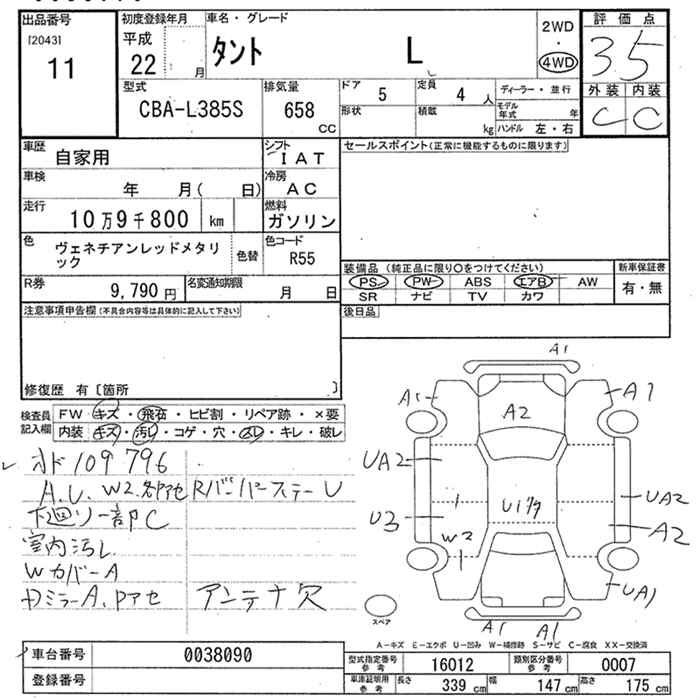 出品番号 初度登録年月 車名・グレード 2WD 評価点
[2043] 平成 ・ 35
11 22 月 タント L 4WD
外装 内装
C C
型式 排気量 ドア 5 定員 4 人 ディーラー・並行
CBA-L385S 658 cc 形状 積載 kg モデル年式 年
ハンドル 左・右
車歴 自家用 シフト IAT セールスポイント(正常に機能するものに限ります)
車検 年 月( 日) 冷房 AC
走行 10万9千800 km 燃料 ガソリン
色 ヴェネチアンレッドメタリック 色替 色コード R55
装備品 (純正品に限り○をつけてください) 新車保証書
PS PW ABS エアB AW 有・無
SR ナビ TV カワ
R券 9,790 円 名変通知期限 月 日
後日品
注意事項申告欄(不具合内容等は具体的に記入して下さい)
修復歴 有 [箇所 ]
検査員記入欄 FW キズ・飛石・ヒビ割・リペア跡・×要
内装 キズ・汚レ・コゲ・穴・スレ・キレ・破レ
オド109796
A.U.W2.各部アセ Rバンパーステー U
下廻り一部C
室内汚レ
WカバーA
DミラーA.Pアセ アンテナ穴
A1
A1 A1
A2
UA2
U3 U1多 UA2
W2 A2
UA1
A1 A1
スペア
A-キズ E-エクボ U-凹み W-補修跡 S-サビ C-腐食 XX-交換済
車台番号 0038090
登録番号
型式指定番号 参考 16012 類別区分番号 参考 0007
車庫証明用 参考 長さ 339 cm 幅 147 cm 高さ 175 cm